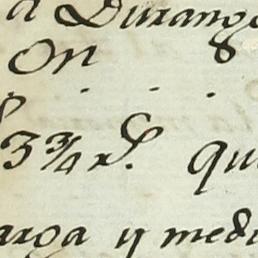 a Durango
On 8
3 3/4 rs. qu
arga y medi